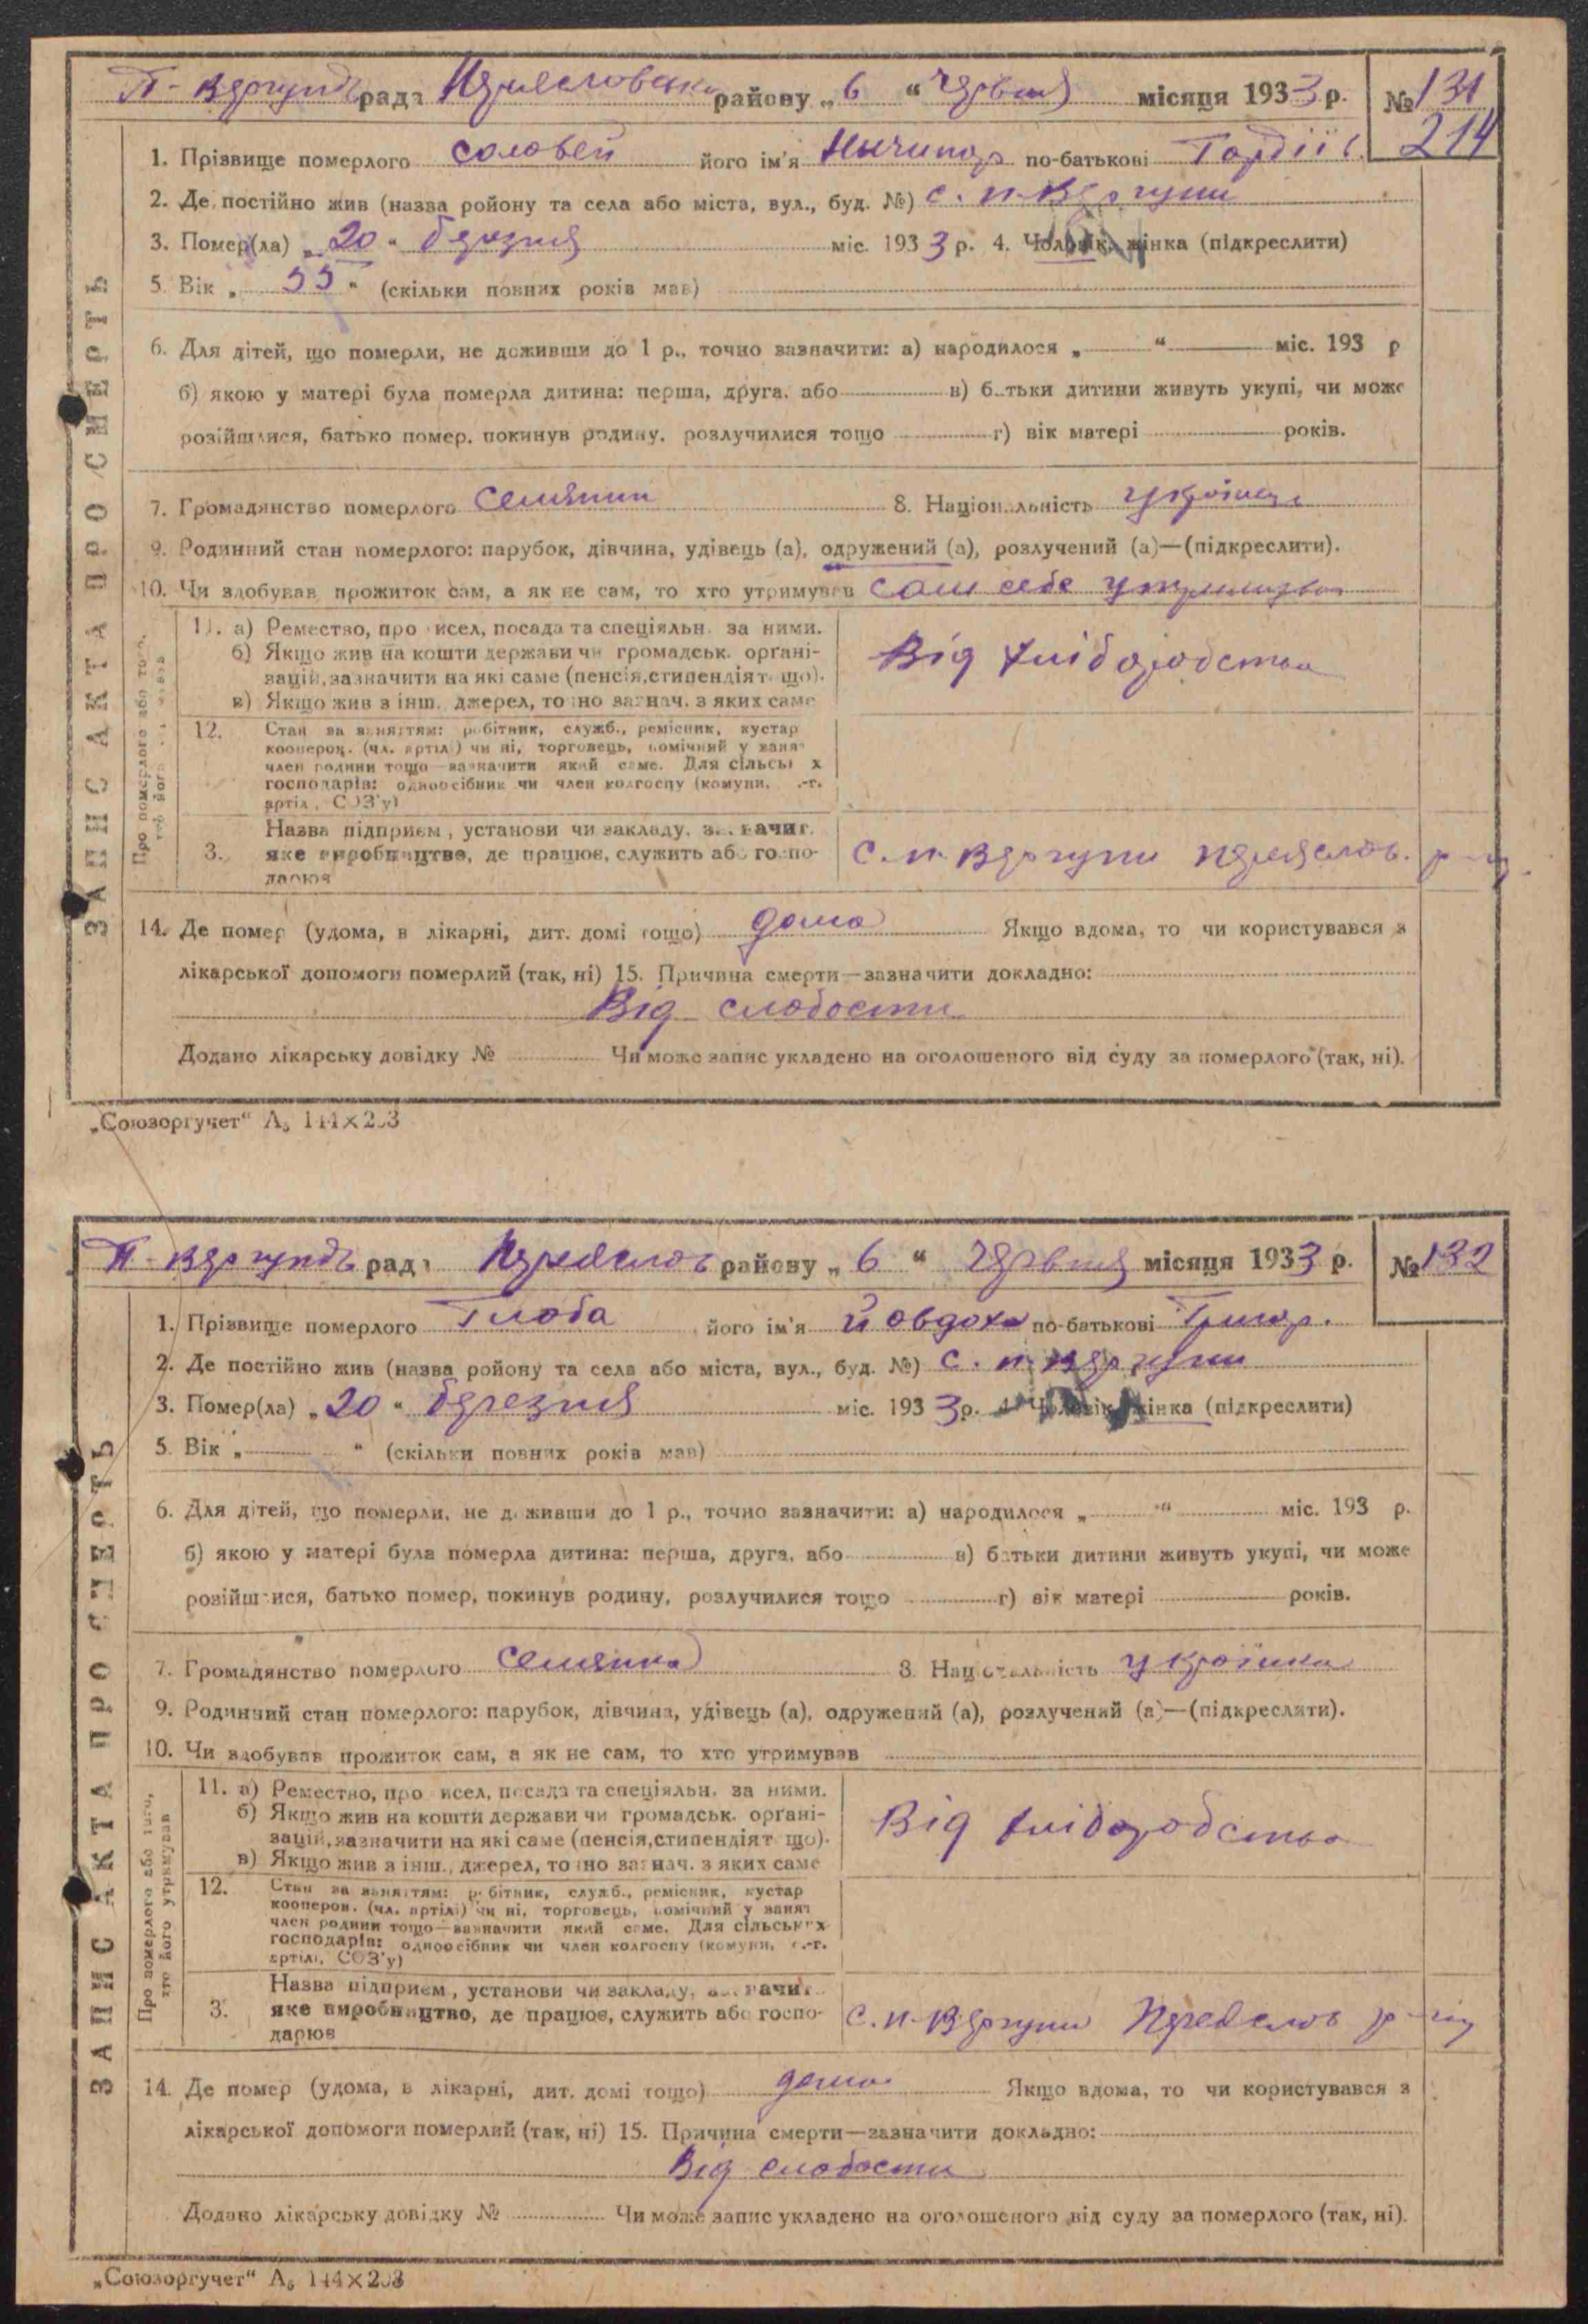 П-Вергунів рада Переясловсько району „ 6 “ червня місяця 1933 р. № 131
214
1. Прізвище померлого Соловей його ім'я Ничипор по-батькові Гордіїв.
2. Де постійно жив (назва ройону та села або міста, вул., буд. №) с. п-Вергуни
3. Помер(ла) „ 20 “ березня міс. 1933 р. 4. Чоловік, жінка (підкреслити)
5. Вік „ 55 “ (скільки повних років мав)
6. Для дітей, що померли, не доживши до 1 р., точно зазначити: а) народилося „ “ міс. 193 р
б) якою у матері була померла дитина: перша, друга, або в) батьки дитини живуть укупі, чи може
розійшлися, батько помер, покинув родину, розлучилися тощо г) вік матері років.
7. Громадянство померлого Селянин 8. Національність українец
9. Родинний стан померлого: парубок, дівчина, удівець (а), одружений (а), розлучений (а)—(підкреслити).
10. Чи здобував прожиток сам, а як не сам, то хто утримував сам себе
11. а) Ремество, промисел, посада та спеціяльн. за ними.
б) Якщо жив на кошти держави чи громадськ. орґані-
зацій, зазначити на які саме (пенсія, стипендія тощо).
в) Якщо жив з інш. джерел, точно зазнач. з яких саме
Від хліборобства
12. Стан за заняттям: робітник, служб., ремісник, кустар
кооперов. (чл. артілі) чи ні, торговець, помічний у занят
член родини тощо—зазначити який саме. Для сільських
господарів: одноосібник чи член колгоспу (комуни, с.-г.
артілі, СОЗ'у)
3. Назва підприєм, установи чи закладу, зазначит.
яке виробництво, де працює, служить або госпо-
дарює
с. п. Вергуни Переяслов. р-ну
14. Де помер (удома, в лікарні, дит. домі тощо) дома Якщо вдома, то чи користувався з
лікарської допомоги померлий (так, ні) 15. Причина смерти—зазначити докладно:
Від слабости
Додано лікарську довідку № Чи може запис укладено на оголошеного від суду за померлого (так, ні).
ЗАПИС АКТА ПРО СМЕРТЬ
„Союзоргучет“ А₅ 144×203
П-Вергунів рада Переяслов району „ 6 “ червня місяця 1933 р. № 132
1. Прізвище померлого Глоба його ім'я Йовдоха по-батькові Григор.
2. Де постійно жив (назва ройону та села або міста, вул., буд. №) с. п. Вергуни
3. Помер(ла) „ 20 “ березня міс. 1933 р. 4. Чоловік, жінка (підкреслити)
5. Вік „ “ (скільки повних років мав)
6. Для дітей, що померли, не доживши до 1 р., точно зазначити: а) народилося „ “ міс. 193 р.
б) якою у матері була померла дитина: перша, друга, або в) батьки дитини живуть укупі, чи може
розійшлися, батько помер, покинув родину, розлучилися тощо г) вік матері років.
7. Громадянство померлого Селянка 8. Національність українка
9. Родинний стан померлого: парубок, дівчина, удівець (а), одружений (а), розлучений (а)—(підкреслити).
10. Чи здобував прожиток сам, а як не сам, то хто утримував
11. а) Ремество, промисел, посада та спеціяльн. за ними.
б) Якщо жив на кошти держави чи громадськ. орґані-
зацій, зазначити на які саме (пенсія, стипендія тощо).
в) Якщо жив з інш., джерел, точно зазнач. з яких саме
Від хліборобства
12. Стан за заняттям: робітник, служб., ремісник, кустар
кооперов. (чл. артілі) чи ні, торговець, помічний у занят
член родини тощо—зазначити який саме. Для сільських
господарів: одноосібник чи член колгоспу (комуни, с.-г.
артілі, СОЗ'у)
3. Назва підприєм, установи чи закладу, зазначит.
яке виробництво, де працює, служить або госпо-
дарює
с. п-Вергуни Переяслов р-ну
14. Де помер (удома, в лікарні, дит. домі тощо) дома Якщо вдома, то чи користувався з
лікарської допомоги померлий (так, ні) 15. Причина смерти—зазначити докладно:
Від слабости
Додано лікарську довідку № Чи може запис укладено на оголошеного від суду за померлого (так, ні).
ЗАПИС АКТА ПРО СМЕРТЬ
Про померлого або того, хто його утримував
„Союзоргучет“ А₅ 144×203